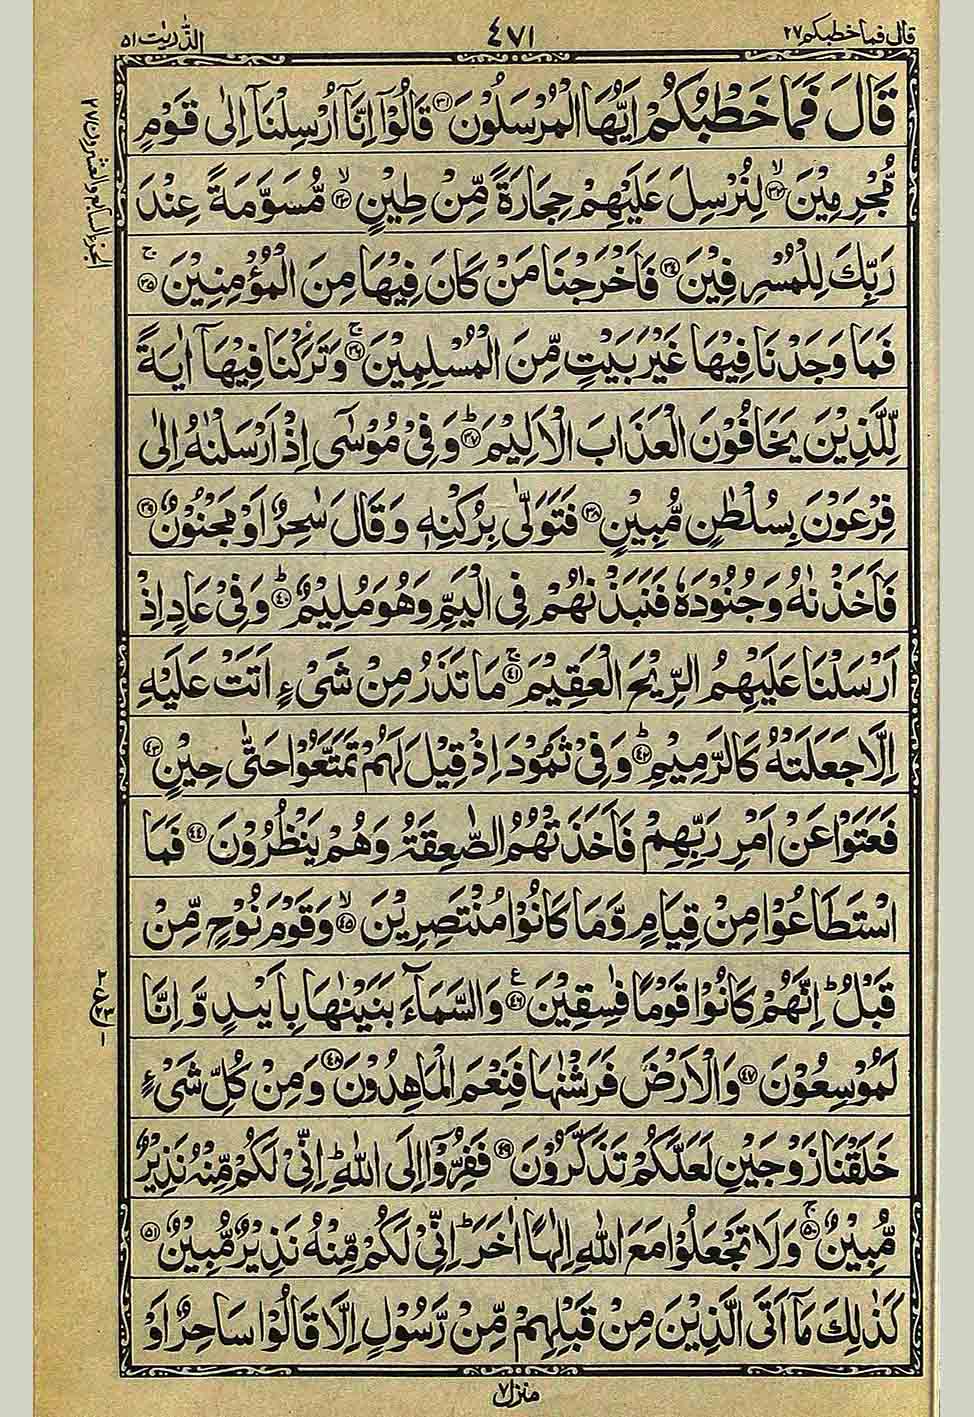 قال فما خطبكم ٢٧ ٤٧١ الذّٰريٰت ٥١
قَالَ فَمَا خَطْبُكُمْ اَيُّهَا الْمُرْسَلُوْنَ ﴿٣١﴾ قَالُوْۤا اِنَّاۤ اُرْسِلْنَاۤ اِلٰى قَوْمٍ
مُّجْرِمِيْنَ ﴿٣٢﴾ۙ لِنُرْسِلَ عَلَيْهِمْ حِجَارَةً مِّنْ طِيْنٍ ﴿٣٣﴾ۙ مُّسَوَّمَةً عِنْدَ
رَبِّكَ لِلْمُسْرِفِيْنَ ﴿٣٤﴾ فَاَخْرَجْنَا مَنْ كَانَ فِيْهَا مِنَ الْمُؤْمِنِيْنَ ﴿٣٥﴾ۚ
فَمَا وَجَدْنَا فِيْهَا غَيْرَ بَيْتٍ مِّنَ الْمُسْلِمِيْنَ ﴿٣٦﴾ۚ وَتَرَكْنَا فِيْهَاۤ اٰيَةً
لِّلَّذِيْنَ يَخَافُوْنَ الْعَذَابَ الْاَلِيْمَ ﴿٣٧﴾ؕ وَفِيْ مُوْسٰۤى اِذْ اَرْسَلْنٰهُ اِلٰى
فِرْعَوْنَ بِسُلْطٰنٍ مُّبِيْنٍ ﴿٣٨﴾ فَتَوَلّٰى بِرُكْنِهٖ وَقَالَ سٰحِرٌ اَوْ مَجْنُوْنٌ ﴿٣٩﴾
فَاَخَذْنٰهُ وَجُنُوْدَهٗ فَنَبَذْنٰهُمْ فِي الْيَمِّ وَهُوَ مُلِيْمٌ ﴿٤٠﴾ؕ وَفِيْ عَادٍ اِذْ
اَرْسَلْنَا عَلَيْهِمُ الرِّيْحَ الْعَقِيْمَ ﴿٤١﴾ۚ مَا تَذَرُ مِنْ شَيْءٍ اَتَتْ عَلَيْهِ
اِلَّا جَعَلَتْهُ كَالرَّمِيْمِ ﴿٤٢﴾ؕ وَفِيْ ثَمُوْدَ اِذْ قِيْلَ لَهُمْ تَمَتَّعُوْا حَتّٰى حِيْنٍ ﴿٤٣﴾
فَعَتَوْا عَنْ اَمْرِ رَبِّهِمْ فَاَخَذَتْهُمُ الصّٰعِقَةُ وَهُمْ يَنْظُرُوْنَ ﴿٤٤﴾ فَمَا
اسْتَطَاعُوْا مِنْ قِيَامٍ وَّمَا كَانُوْا مُنْتَصِرِيْنَ ﴿٤٥﴾ۙ وَقَوْمَ نُوْحٍ مِّنْ
قَبْلُ ؕ اِنَّهُمْ كَانُوْا قَوْمًا فٰسِقِيْنَ ﴿٤٦﴾ع وَالسَّمَآءَ بَنَيْنٰهَا بِاَيْىدٍ وَّاِنَّا
لَمُوْسِعُوْنَ ﴿٤٧﴾ وَالْاَرْضَ فَرَشْنٰهَا فَنِعْمَ الْمَاهِدُوْنَ ﴿٤٨﴾ وَمِنْ كُلِّ شَيْءٍ
خَلَقْنَا زَوْجَيْنِ لَعَلَّكُمْ تَذَكَّرُوْنَ ﴿٤٩﴾ فَفِرُّوْۤا اِلَى اللّٰهِ ؕ اِنِّيْ لَكُمْ مِّنْهُ نَذِيْرٌ
مُّبِيْنٌ ﴿٥٠﴾ۚ وَلَا تَجْعَلُوْا مَعَ اللّٰهِ اِلٰهًا اٰخَرَ ؕ اِنِّيْ لَكُمْ مِّنْهُ نَذِيْرٌ مُّبِيْنٌ ﴿٥١﴾
كَذٰلِكَ مَاۤ اَتَى الَّذِيْنَ مِنْ قَبْلِهِمْ مِّنْ رَّسُوْلٍ اِلَّا قَالُوْا سَاحِرٌ اَوْ
منزل ٧
الجزء السابع والعشرون ٢٧